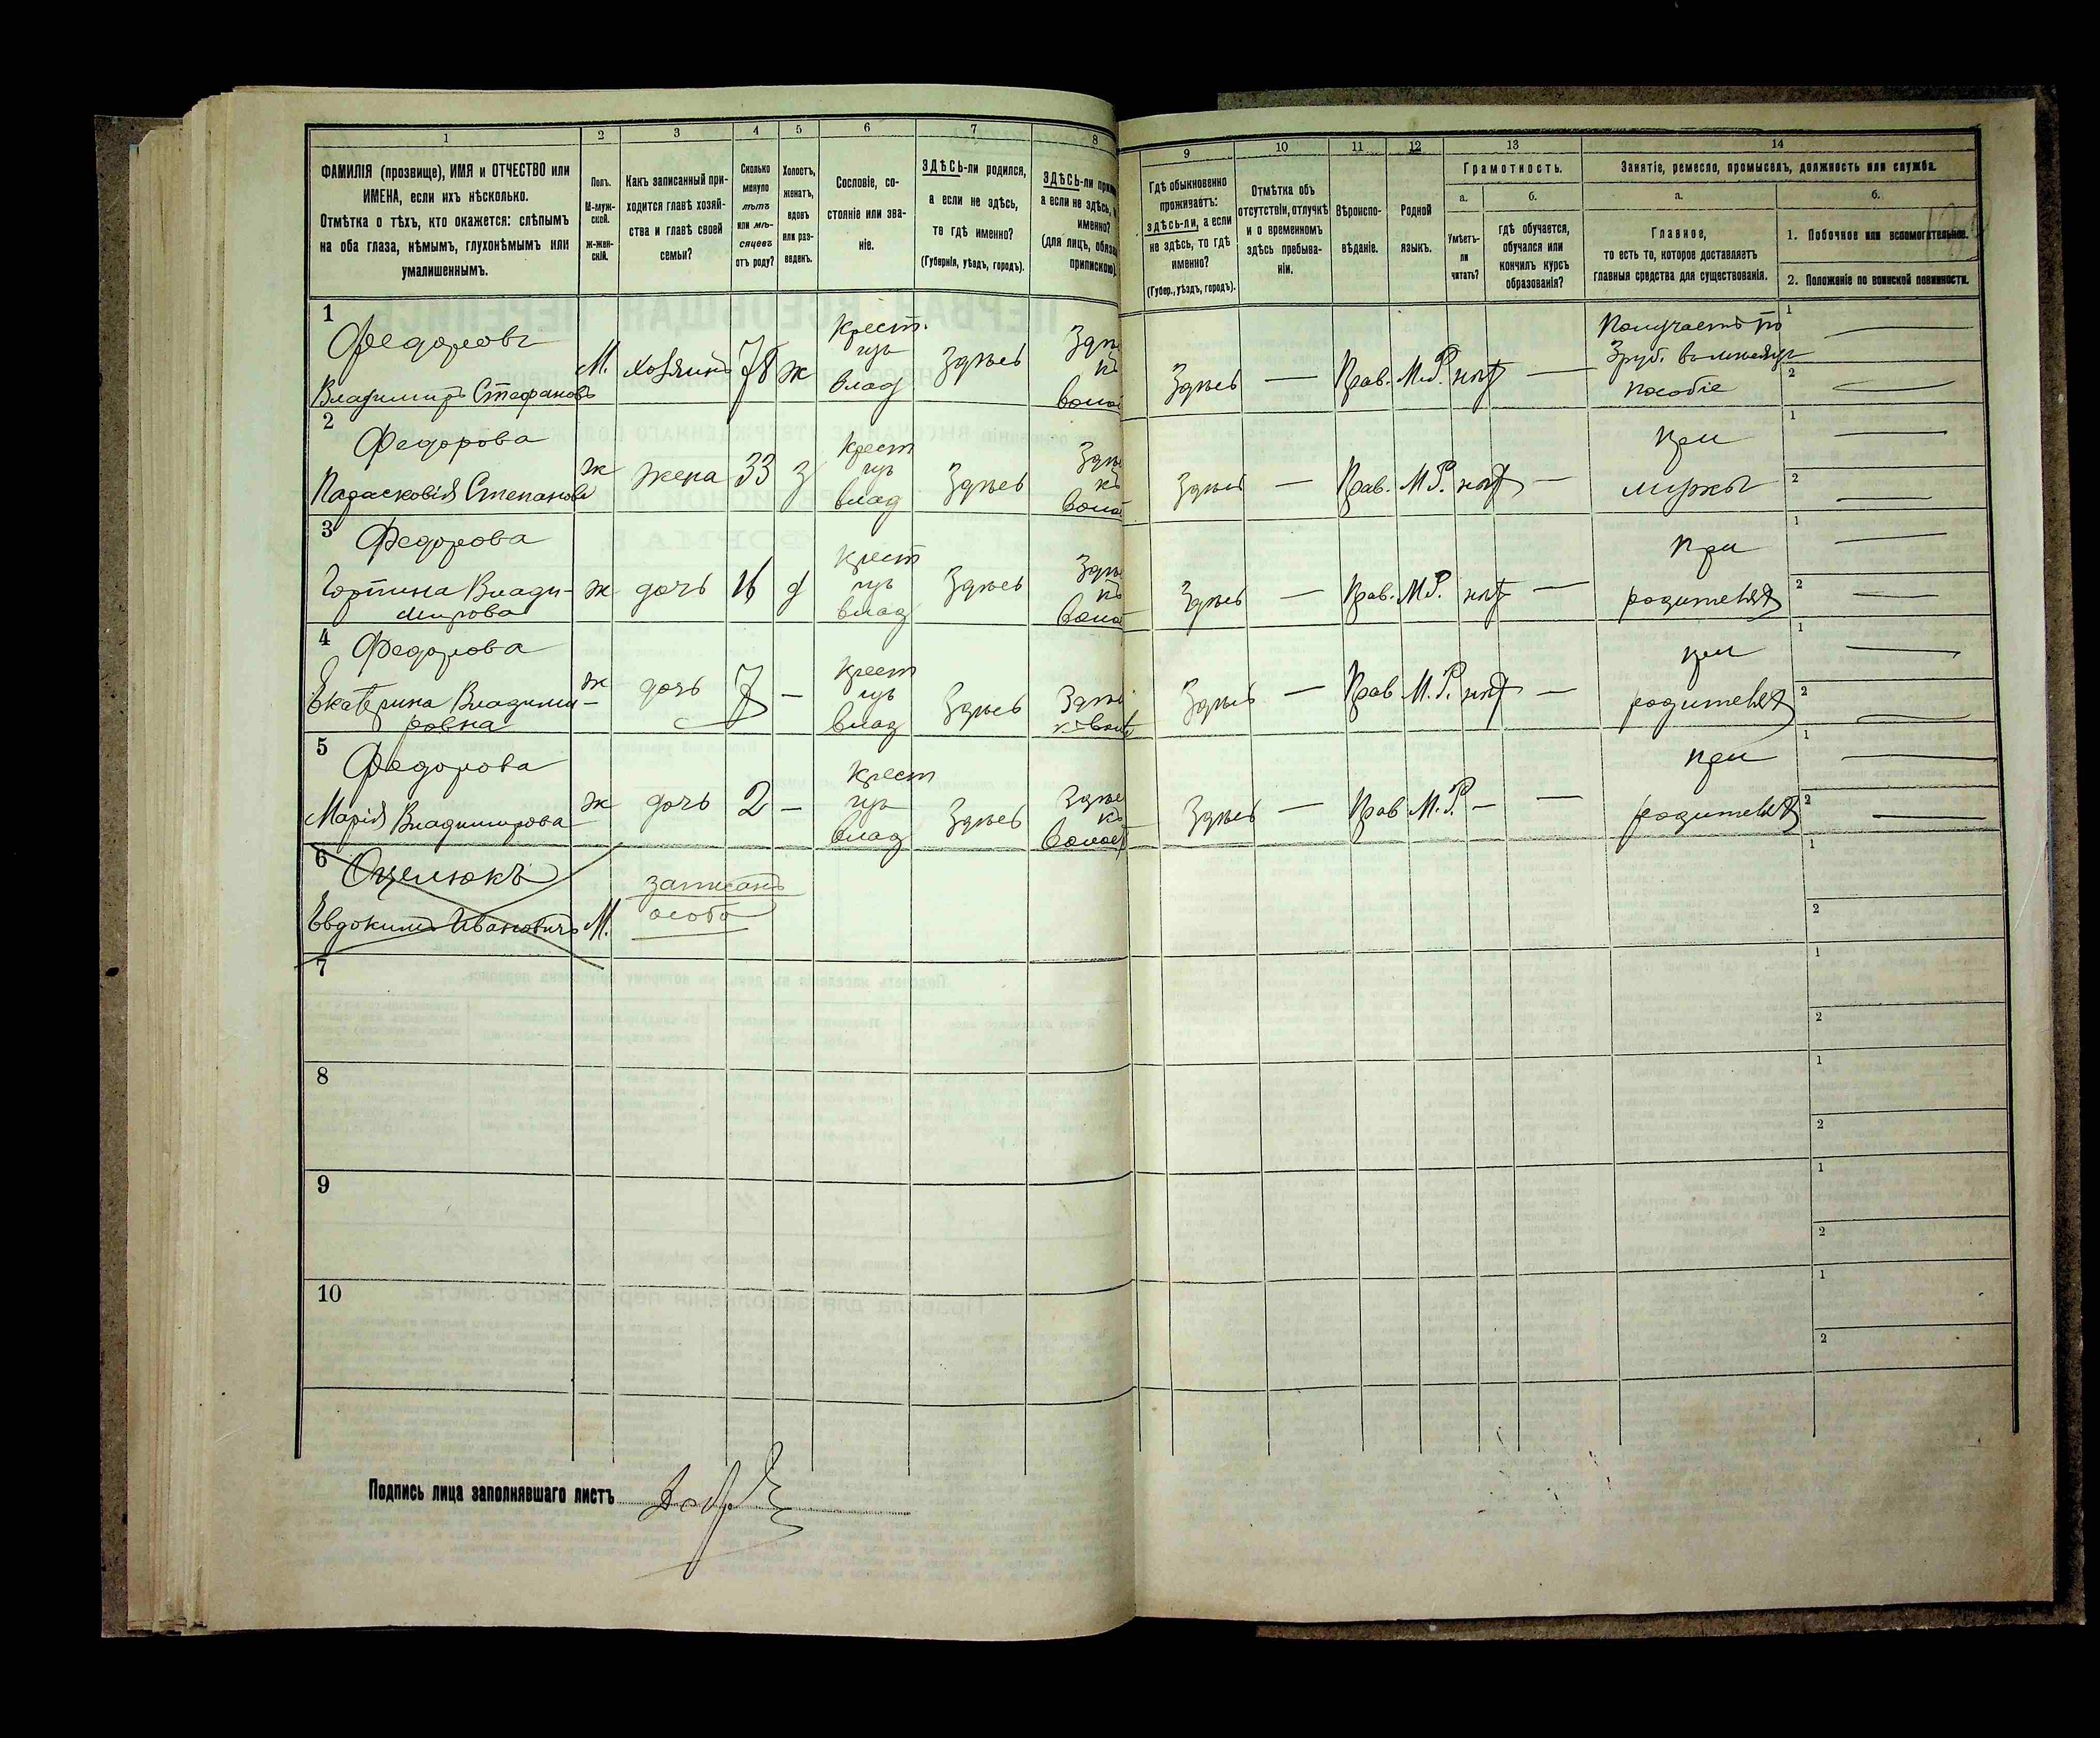 1
2
3
4
5
6
7
8
ФАМИЛІЯ (прозвище), ИМЯ и ОТЧЕСТВО или
ИМЕНА, если ихъ нѣсколько.
Отмѣтка о тѣхъ, кто окажется: слѣпымъ
на оба глаза, нѣмымъ, глухонѣмымъ или
умалишеннымъ.
Полъ.
М-муж-
ской.
ж-жен-
скій.
Какъ записанный при-
ходится главѣ хозяй-
ства и главѣ своей
семьи?
Сколько
минуло
лѣтъ
или мѣ-
сяцевъ
отъ роду?
Холостъ,
женатъ,
вдовъ
или раз-
веденъ.
Сословіе, со-
стояніе или зва-
ніе.
ЗДѢСЬ-ли родился,
а если не здѣсь,
то гдѣ именно?
(Губернія, уѣздъ, городъ).
ЗДѢСЬ-ли
а если не здѣсь,
именно?
(для лицъ,
припискою)
9
10
11
12
13
14
Гдѣ обыкновенно
проживаетъ:
здѣсь-ли, а если
не здѣсь, то гдѣ
именно?
(Губер., уѣздъ, городъ).
Отмѣтка объ
отсутствіи, отлучкѣ
и о временномъ
здѣсь пребыва-
ніи.
Вѣроиспо-
вѣданіе.
Родной
языкъ.
Грамотность.
а.
Умѣетъ-
ли
читать?
б.
гдѣ обучается,
обучался или
кончилъ курсъ
образованія?
Занятіе, ремесло, промыселъ, должность или служба.
а.
Главное,
то есть то, которое доставляетъ
главныя средства для существованія.
б.
1. Побочное или вспомогательное.
2. Положеніе по воинской повинности.
1
Федоровъ
Владимиръ Стефановъ
М. хозяинъ 78 ж
Крест
изъ
влад
Здѣсь
Здѣсь — Прав. М.Р. нѣт —
Получаетъ по
пособіе
1 —
2 —
2
Федорова
Парасковія Степанова
ж жена 33 з
Крест
изъ
влад
Здѣсь
Здѣсь — Прав. М.Р. нѣт —
при
мужѣ
1 —
2 —
3
Федорова
Влади-
мирова
ж дочь 16 д
Крест
изъ
влад
Здѣсь
Здѣсь — Прав. М.Р. нѣт —
при
родителях
1 —
2 —
4
Федорова
Екатерина Владими-
ровна
ж дочь 7 —
Крест
изъ
влад
Здѣсь
Здѣсь — Прав М.Р. нѣт —
при
родителях
1 —
2 —
5
Федорова
Марія Владимирова
ж дочь 2 —
Крест
изъ
влад
Здѣсь
Здѣсь — Прав М.Р. — —
при
родителях
1 —
2 —
6
Евдокимъ Ивановичъ М.
записанъ
особо
1
2
7
1
2
8
1
2
9
1
2
10
1
2
Подпись лица заполнявшаго листъ